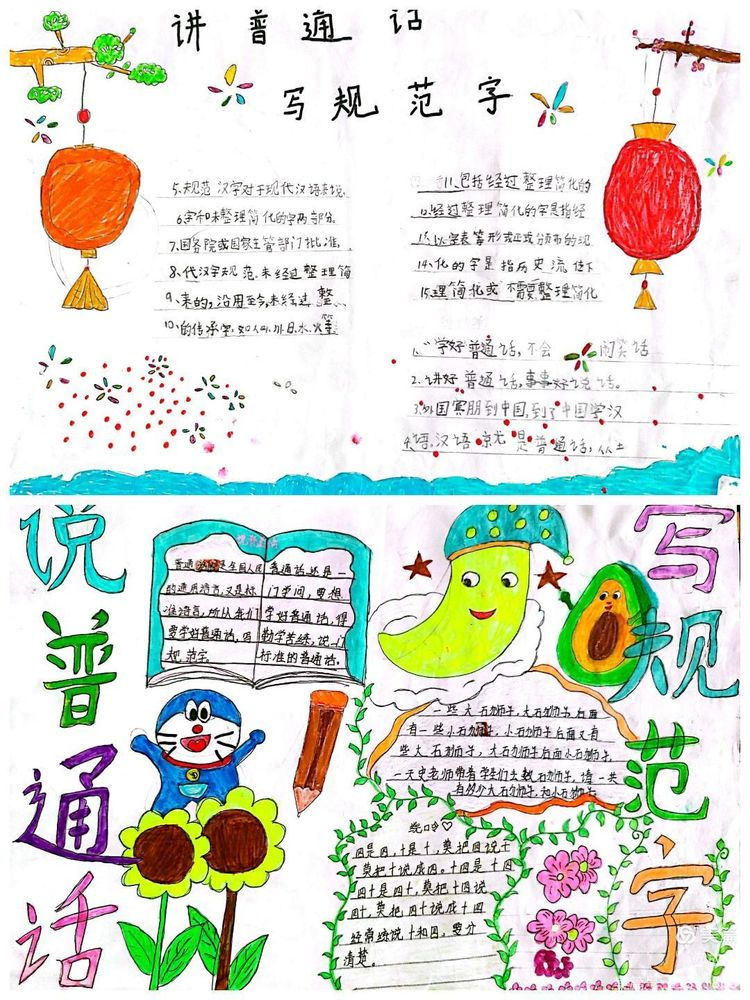 讲普通话
写规范字
5.规范汉字对于现代汉语表现
6.字和未整理简化的字两部分.
7.国务院或国家主管部门批准,
8、代汉字规范.未经过整理简
9、来的,沿用至今,未经过整、
10、的传承字.如人、川、日、水、火等
11、包括经过整理简化的
12.经过整理简化的字是指经
13、以字表等形式正式颁布的现
14、化的字是指历史流传下
15.理简化或不需要整理简化
1.“学好普通话,不会闹笑话
2.讲好普通话,事事好说话。
3.外国宾朋到中国,到了中国学汉
4.语.汉语就是普通话,从土
说普通话
普通话是全国人民
的通用语言,又是标
准语言,所以我们
要学好普通话,写
规范字.
普通话还是一
门学问,要想
学好普通话,得
勤学苦练,说一门
标准的普通话。
写规范字
一些大石狮子,大石狮子后面
有一些小石狮子,小石狮子后面又有
些大石狮子,大石狮子后面小石狮子.
一天史老师带着学生们去数石狮子,请一共
有多少大石狮子,和小石狮子
绕口令
四是四,十是十,莫把四说十
莫把十说成四。十四是十四
四十是四十,莫把十四说
四十,莫把四十说成十四
经常练说十和四,要分
清楚。